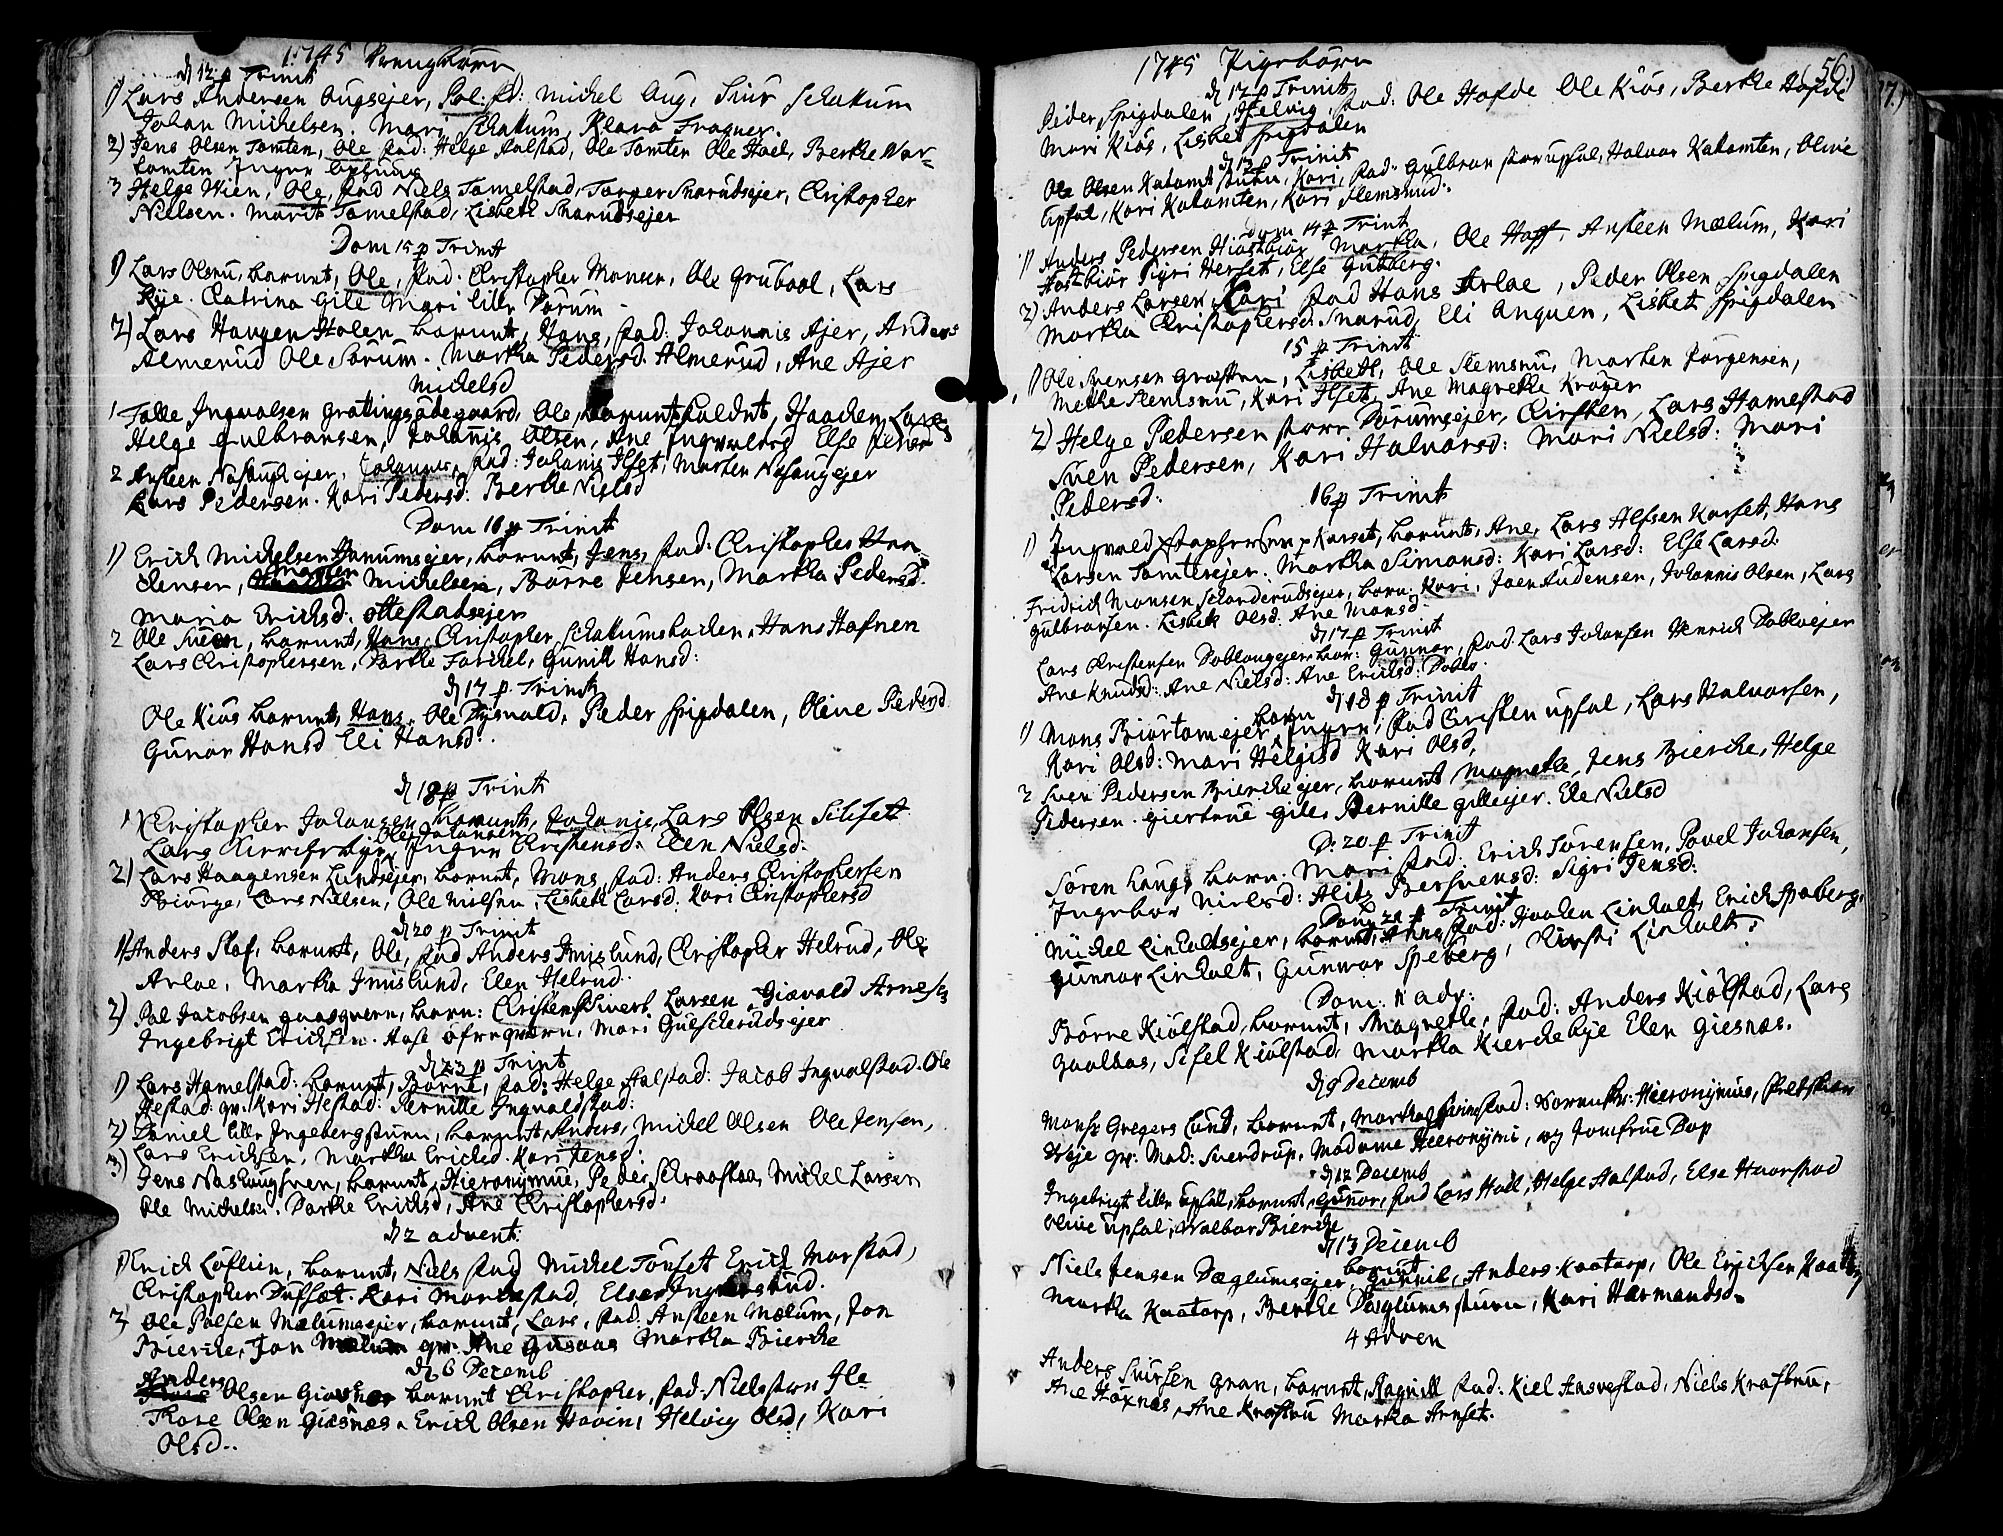 1745 Drengbørn
d 12 p Trinit
1) Lars Andersen Augsejer, Pol: fd: Michel Aug, Siur Schakum
Johan Michelsen. Mari Schakum, Klara Fragner.
2) Jens Olsen Tomten, Ole fad: Helge Aalstad, Ole Tomten Ole Hoel, Berthe Nor-
tomten Ingur
3 Helge Wien, Ole, fad Niels Tomelstad, Torger Snarudsejer, Christopher
Nielsen. Marit Tomelstad, Lisbeth Snarudsejer
Dom 15 p Trinit
1) Lars Olsen, barnet, Ole, fad: Christopher Monsen, Ole Grubaal, Lars
Rye. Catrina Gile Mari lille Sorum
2) Lars Haugen Holen barnet, Hans, fad: Johannis Ajer, Anders
Almerud Ole Sorum. Martha Pedersd Almerud, Ane Ajer
Michelsd
1 Tolle Ingvolsen Grottingsødegaard, Ole, barnet kaldet, Haachen Lars
Helge Gulbransen, Johanis Olsen, Ane Ingvolds Else
2 Ansteen Nashaugsejer, Johannes, fad: Johanis Ilset, Morten Nashaugejer
Lars Pedersen. Kari Pedersd: Berthe Nielsd
Dom 16 p Trinit
1) Erich Michelsen Hanumsejer, barnet, Jens, fad: Christopher Haa-
chensen, Michelsen, Børre Jensen, Martha Pedersd.
Maria Erichsd. Ottestadsejer
2 Ole Sveen, barnet, Hans, Christopher Schakumsbachen, Hans Hofnen
Lars Christophersen, Dorthe Farchel, Gunild Hansd:
d 17 p. Trinit
Ole Kiøs barnet, Hans, Ole Dysvold, Peder Spigdalen, Oline Pedersd
Gunor Hansd Eli Hansd.
d 18 p Trinit
1 Christopher Johansen barnet, Johanis, Lars Olsen Silset
Lars Kirchebye, Ole Johansen Ingur Christensd: Elen Nielsd:
2) Lars Haagensen Lundsejer, barnet, Mons, fad: Anders Christophersen
Biørge, Lars Nielsen, Ole Nielsen, Lisbeth Larsd. Kari Christophersd
d 20 p Trinit
1) Anders Slof, barnet, Ole, fad Anders Imislund, Christopher Helrud, Ole
Arloe, Martha Imislund, Elen Helrud.
2) Pol Jacobsen Gaasqvern, barn: Christen, Sivert Larsen, Giøvald Arnes
Ingebrigt Erichsen. Aase Øfreqvern, Mari Gulscherudsejer
d 23 p Trinit
1) Lars Hamelstad: barnet, Børre, fad: Helge Aalstad: Jacob Ingvalstad. Ole
Hestad. qv. Kari Hestad: Pernille Ingvaldstad:
2) Daniel lille Ingebergstuen, barnet, Anders, Michel Olsen Ole Jensen,
Lars Erichsen, Martha Erichsd. Kari Jensd:
3) Jens Nashougsveen, barnet, Hieronymus, Peder Schroostad, Michel Larsen
Ole Michelsen. Dorthe Erichsd, Ane Christophersd.
d 2 advent.
1) Erich Løflien, barnet, Niels fad Michel Tønset Erich Morstad,
Christopher Dufset. Kari Morthstad, Else Ingvarstud.
2) Ole Polsen Mælumsejer, barnet, Lars, fad: Ansteen Mælum, Jon
Bierche, Jon Mælum qv. Ane Gusaas Martha Bierche
d 6 Decemb
Anders Olsen Giøsnes barnet Christopher, fad: Niels store Ile
Thore Olsen Giesnæs. Erich Olsen Hovin, Helvig Olsd, Kari
Olsd.
1745 Pigebørn
(56.)
d 12 p Trinit
Peder Spigdalen, Helvig, fad: Ole Hofde Ole Kiøs, Berthe Hofde
Mari Kiøs, Lisbet Spigdalen
d 13 p Trinit
Ole Olsen Katomt stuen, Kari, fad: Gulbran store upsal, Halvor Katomten, Oline
Upsal, Kari Katomten, Kari Slemsrud.
Dom 14 p Trinit
1) Anders Pedersen Hiøstbiør, Martha, Ole Hoff, Ansteen Mælum, Kari
Høstbiør Sigri Herset, Else Gutberg.
2) Anders Larsen, Kari fad Hans Arloe, Peder Olsen Spigdalen
Martha Christophersd: Snarud, Eli Anquen, Lisbeth Spigdalen
15 p Trinit
1) Ole Svensen Græsteen, Lisbeth, Ole Slemsrud, Morten Jørgensen,
Methe Slemsrud, Kari Ilset, Ane Magrethe Krøyer
2) Helge Pedersen store Sorumsejer, Kirsten, Lars Homestad
Sven Pedersen, Kari Halvorsd: Mari Nielsd: Mari
Pedersd:
16 p Trinit
1) Ingvold Stophersen Korset, barnet, Ane, Lars Alfsen Korset, Hans
Larsen Tomtesejer. Martha Simonsd: Kari Larsd: Else Larsd:
Fridrich Monsen Schonderudsejer, barn: Kari, Joen Audensen, Johannis Olsen, Lars
Gulbransen. Lisbeth Olsd. Ane Monsd.
d 17 p Trinit
Lars Christensen Doblougejer, bar: Gunnor, fad. Lars Johansen Henrich Doblogejer
Ane Knudsd: Ane Nielsd: Ane Erichsd: Doblo.
d 18 p Trinit
1) Mons Biørtomtejer, barn Ingur, fad Christen Upsal, Lars Halvorsen,
Kari Olsd: Mari Helgisd Kari Olsd,
2 Sven Pedersen Bierchesejer, barnet Magrethe, Jens Bierche, Helge
Pedersen. Giertrue Gile, Pernille Gillesejer. Ele Nielsd
D. 20 p Trinit
Søren Haug, barn. Mari fad. Erich Sørensen, Povel Johansen,
Ingebor Nielsd: Alitz Bersvensd: Sigri Jensd.
Dom 21 p Trinit
Michel Linholtsejer, barnet, Anne, fad: Hoolen Linholt, Erich Spaberg,
Gunnor Linholt, Gunvor Speberg, Kirsti Linholt.
Dom: 11 adv:
Børre Kiølstad, barnet, Magrethe, fad: Anders Kiølstad, Lars
Gaalbas, Sisel Kiølstad, Martha Kirchebye Elen Giesnæs.
d 9 Decemb
Monsr Gregers Lund, barnet, Martha fad: Hieronymus,
Weje qv: Mad: Sverdrup, Madame Hieronymi, og Jomfrue Dop
d 12 Decemb
Ingebrigt lille Upsal, barnet, Gunor, fad Lars Hoel, Helge Aalstad, Else Haarstad
Oline Upsal, Walbor Bierche
d 13 Decemb
Niels Jensen Dæglumsejer barnet Gunnil, Anders Kaatorp, Ole Erichsen Kaatorp
Martha Kaatorp, Berthe Dæglumsstuen, Kari Harmandsd.
4 Adven
Anders Siursen Gran, barnet, Ragnild fad: Kiel Aasvestad, Niels Krafbrue,
Ane Høxnæs, Ane Krafbru Martha Arnset.